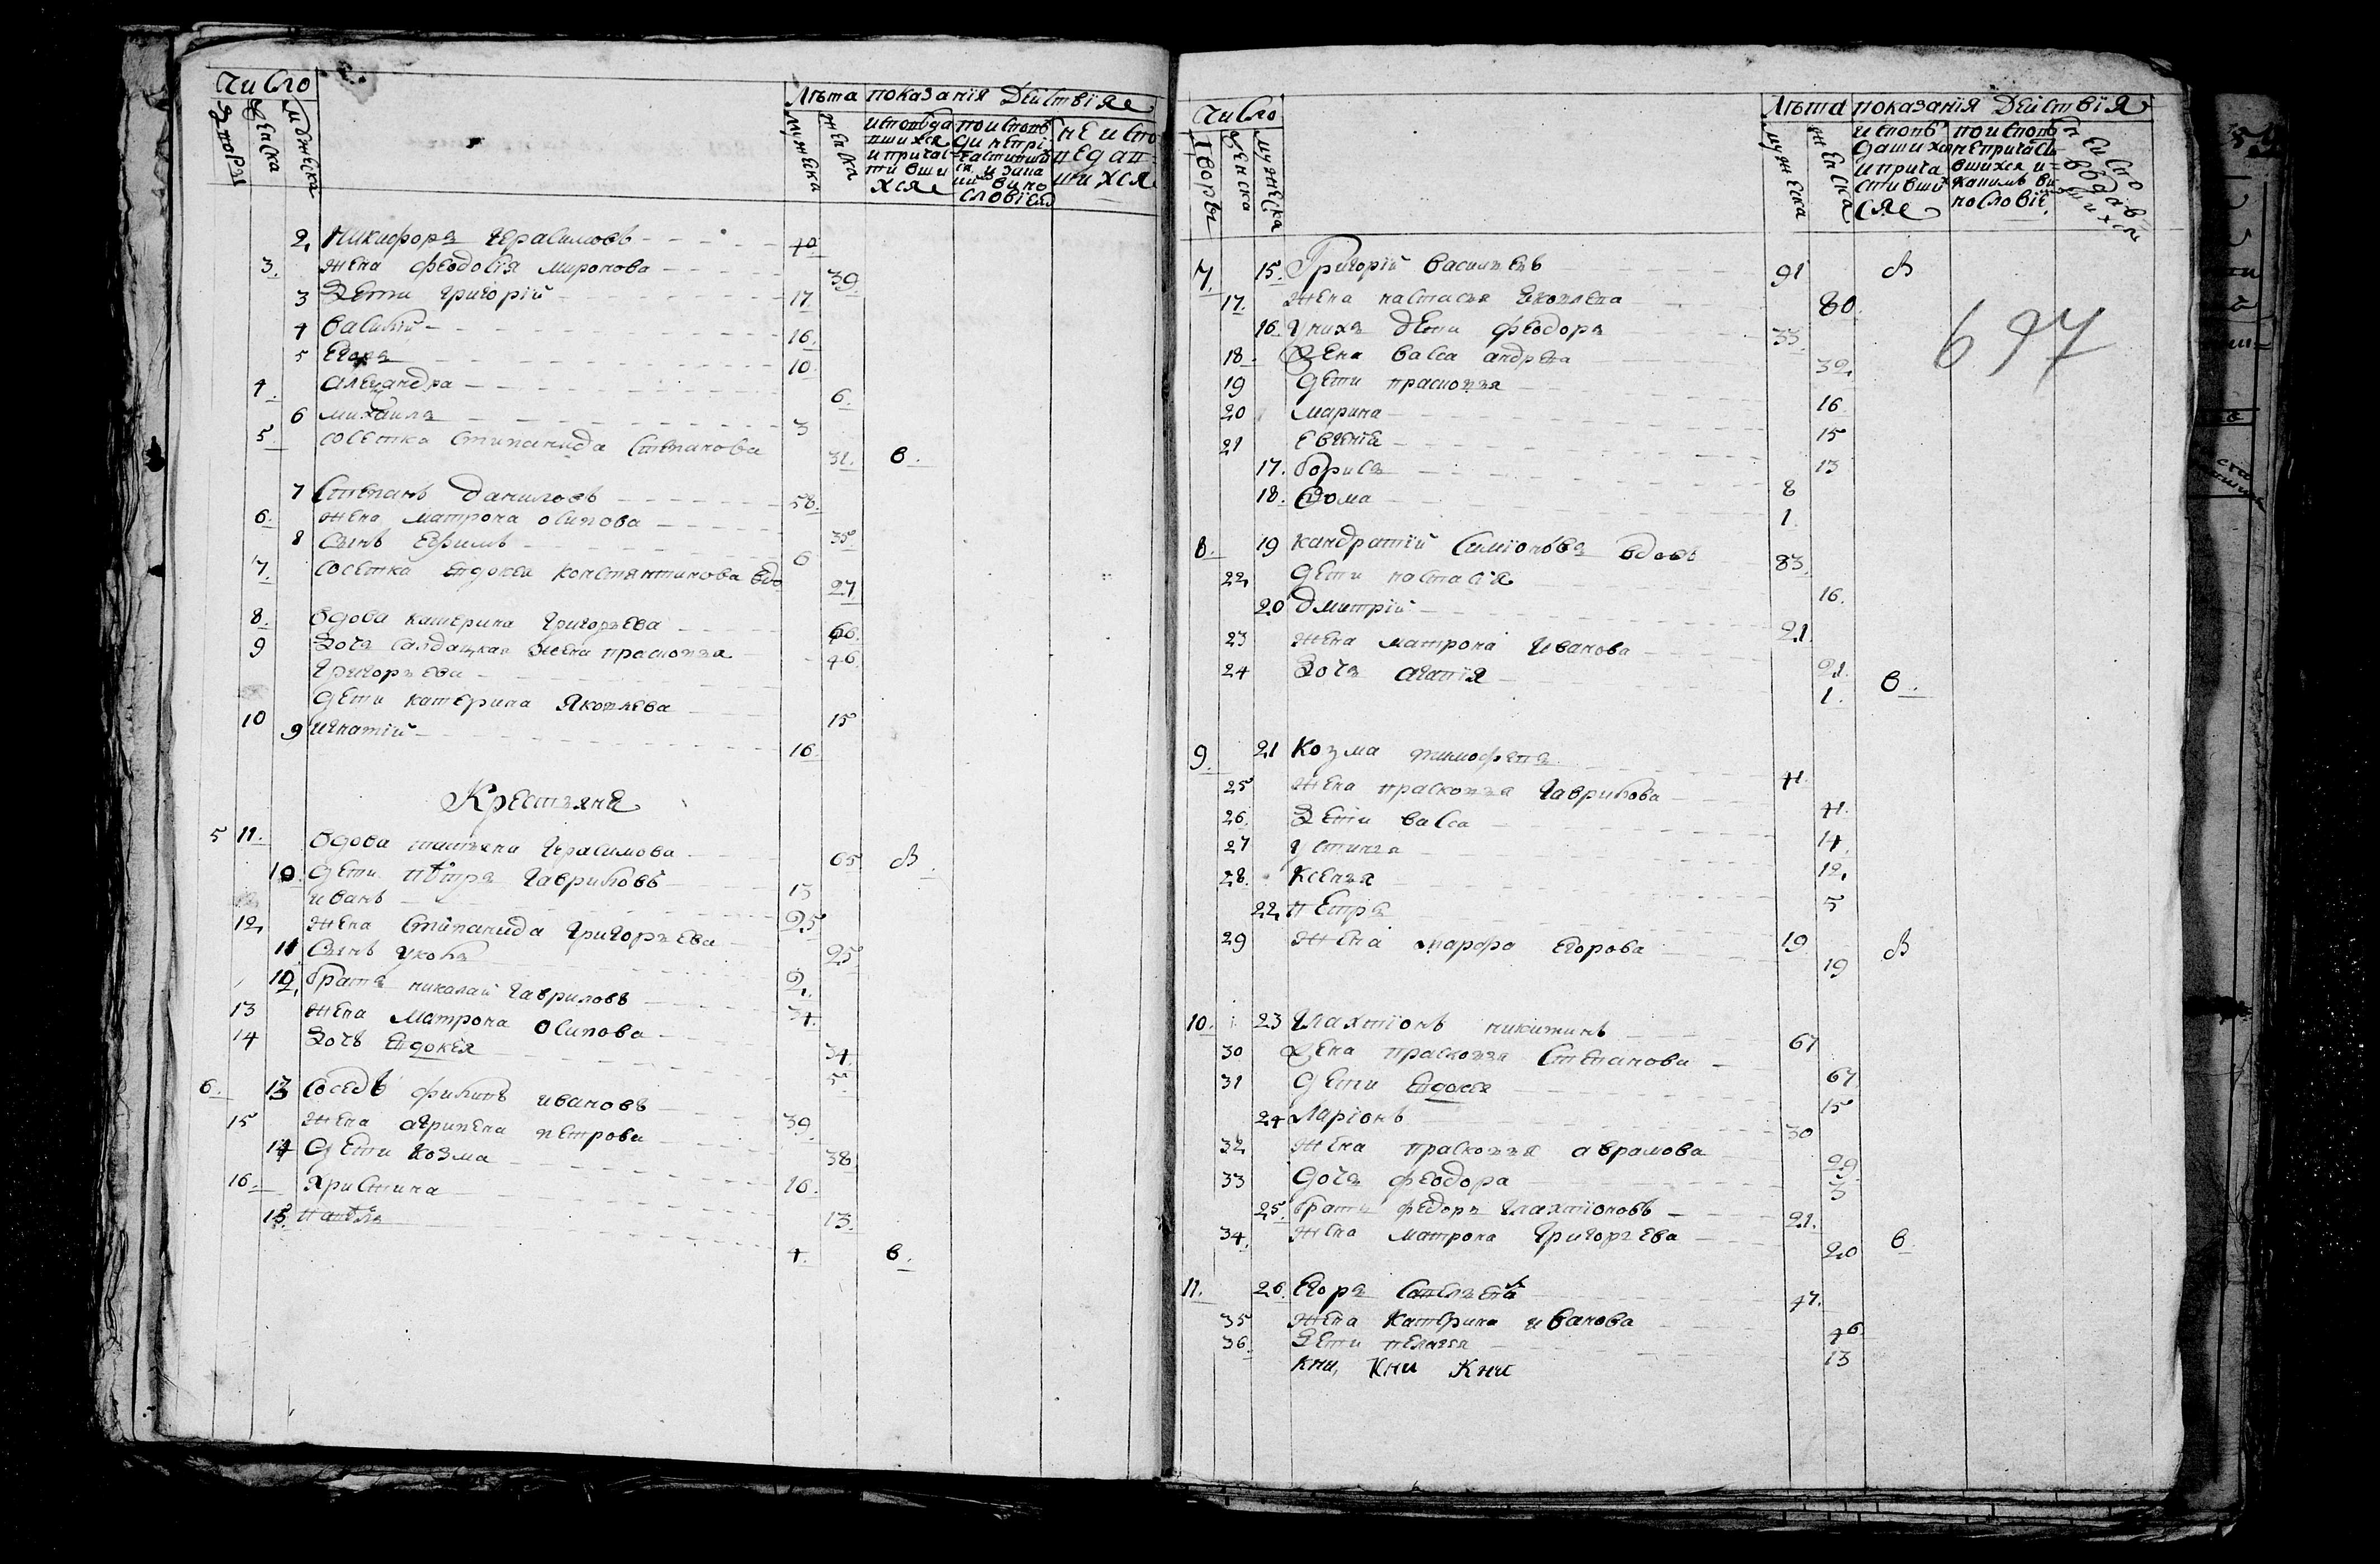 Число
Лѣта показанія Действія
дворы
женска
мужеска
мужеска
женска
исповѣдавшихся и причастившихся
не исповедавшихся
2. Никифоръ Герасимовъ 40
3. жена феодосія миронова 39
3 Дети григорій 17
4 василій 16.
5 Егоръ 10.
4. александра 6.
6 михаила 3
5. соседка стипанида степанова 31. в.
7 степанъ даниловъ 58.
6. жена матрона осипова 35
8 сынъ ефимъ 6
7. соседка евдокея константинова вдо 27
8. вдова катерина григорьева 66.
9 дочь салдацкая жена прасковья 46.
григорьева
дети катерина Яковлева
10 15
9 игнатій 16.
Крестьяне
5 11. вдова татьяна герасимова 65 в.
10. дети петръ гавриловъ 13
иванъ 25
12. жена стипанида григорьева 25
11 сынъ яковъ 2.
12. братъ николай гавриловъ 34.
13 жена матрона осипова 34.
14 дочь евдокея 5
6. 13 соседъ филипъ ивановъ 39.
15 жена агрипена петрова 38
14 дети козма 16.
16. христина 13.
15. павѣлъ 4. в.
Число
Лѣта показанія Действія
дворы
женска
мужеска
мужеска
женска
исповѣдавшихся и причастившихся
не исповѣдавшихся
7. 15. Григорій васильевъ 91 в
17. жена настасья яковлева 80.
697
16. у нихъ дети феодоръ 33.
18. жена васса андрева 32.
19 дети прасковья 16.
20 марина 15
21 евгенія 13
17. борисъ 8
18. фома 1.
8. 19 кандратій симіоновъ вдовъ 83.
22. дети настасія 16.
20 дмитрій 21.
23 жена матрона иванова 21.
24 дочь агапія 1. в.
9. 21 козма тимофевъ 41.
25 жена прасковья гаврилова 41.
26. дети васса 14.
27 устинья 12.
28. ксенья 5
22. петръ 19.
29 жена марфа егорова 19 в
10. 23 Глахтіонъ никитинъ 67
30 жена прасковья степанова 67.
31 дети евдокея 15
24 ларіонъ 30
32 жена прасковья аврамова 29
33 дочь феодора 3
25. братъ федоръ глахтіоновъ 21.
34. жена матрона григорьева 20 в.
11. 26. Егоръ савельевъ 47.
35 жена катерина иванова 46.
36. дети пелагея 13
кни, Кни Кни